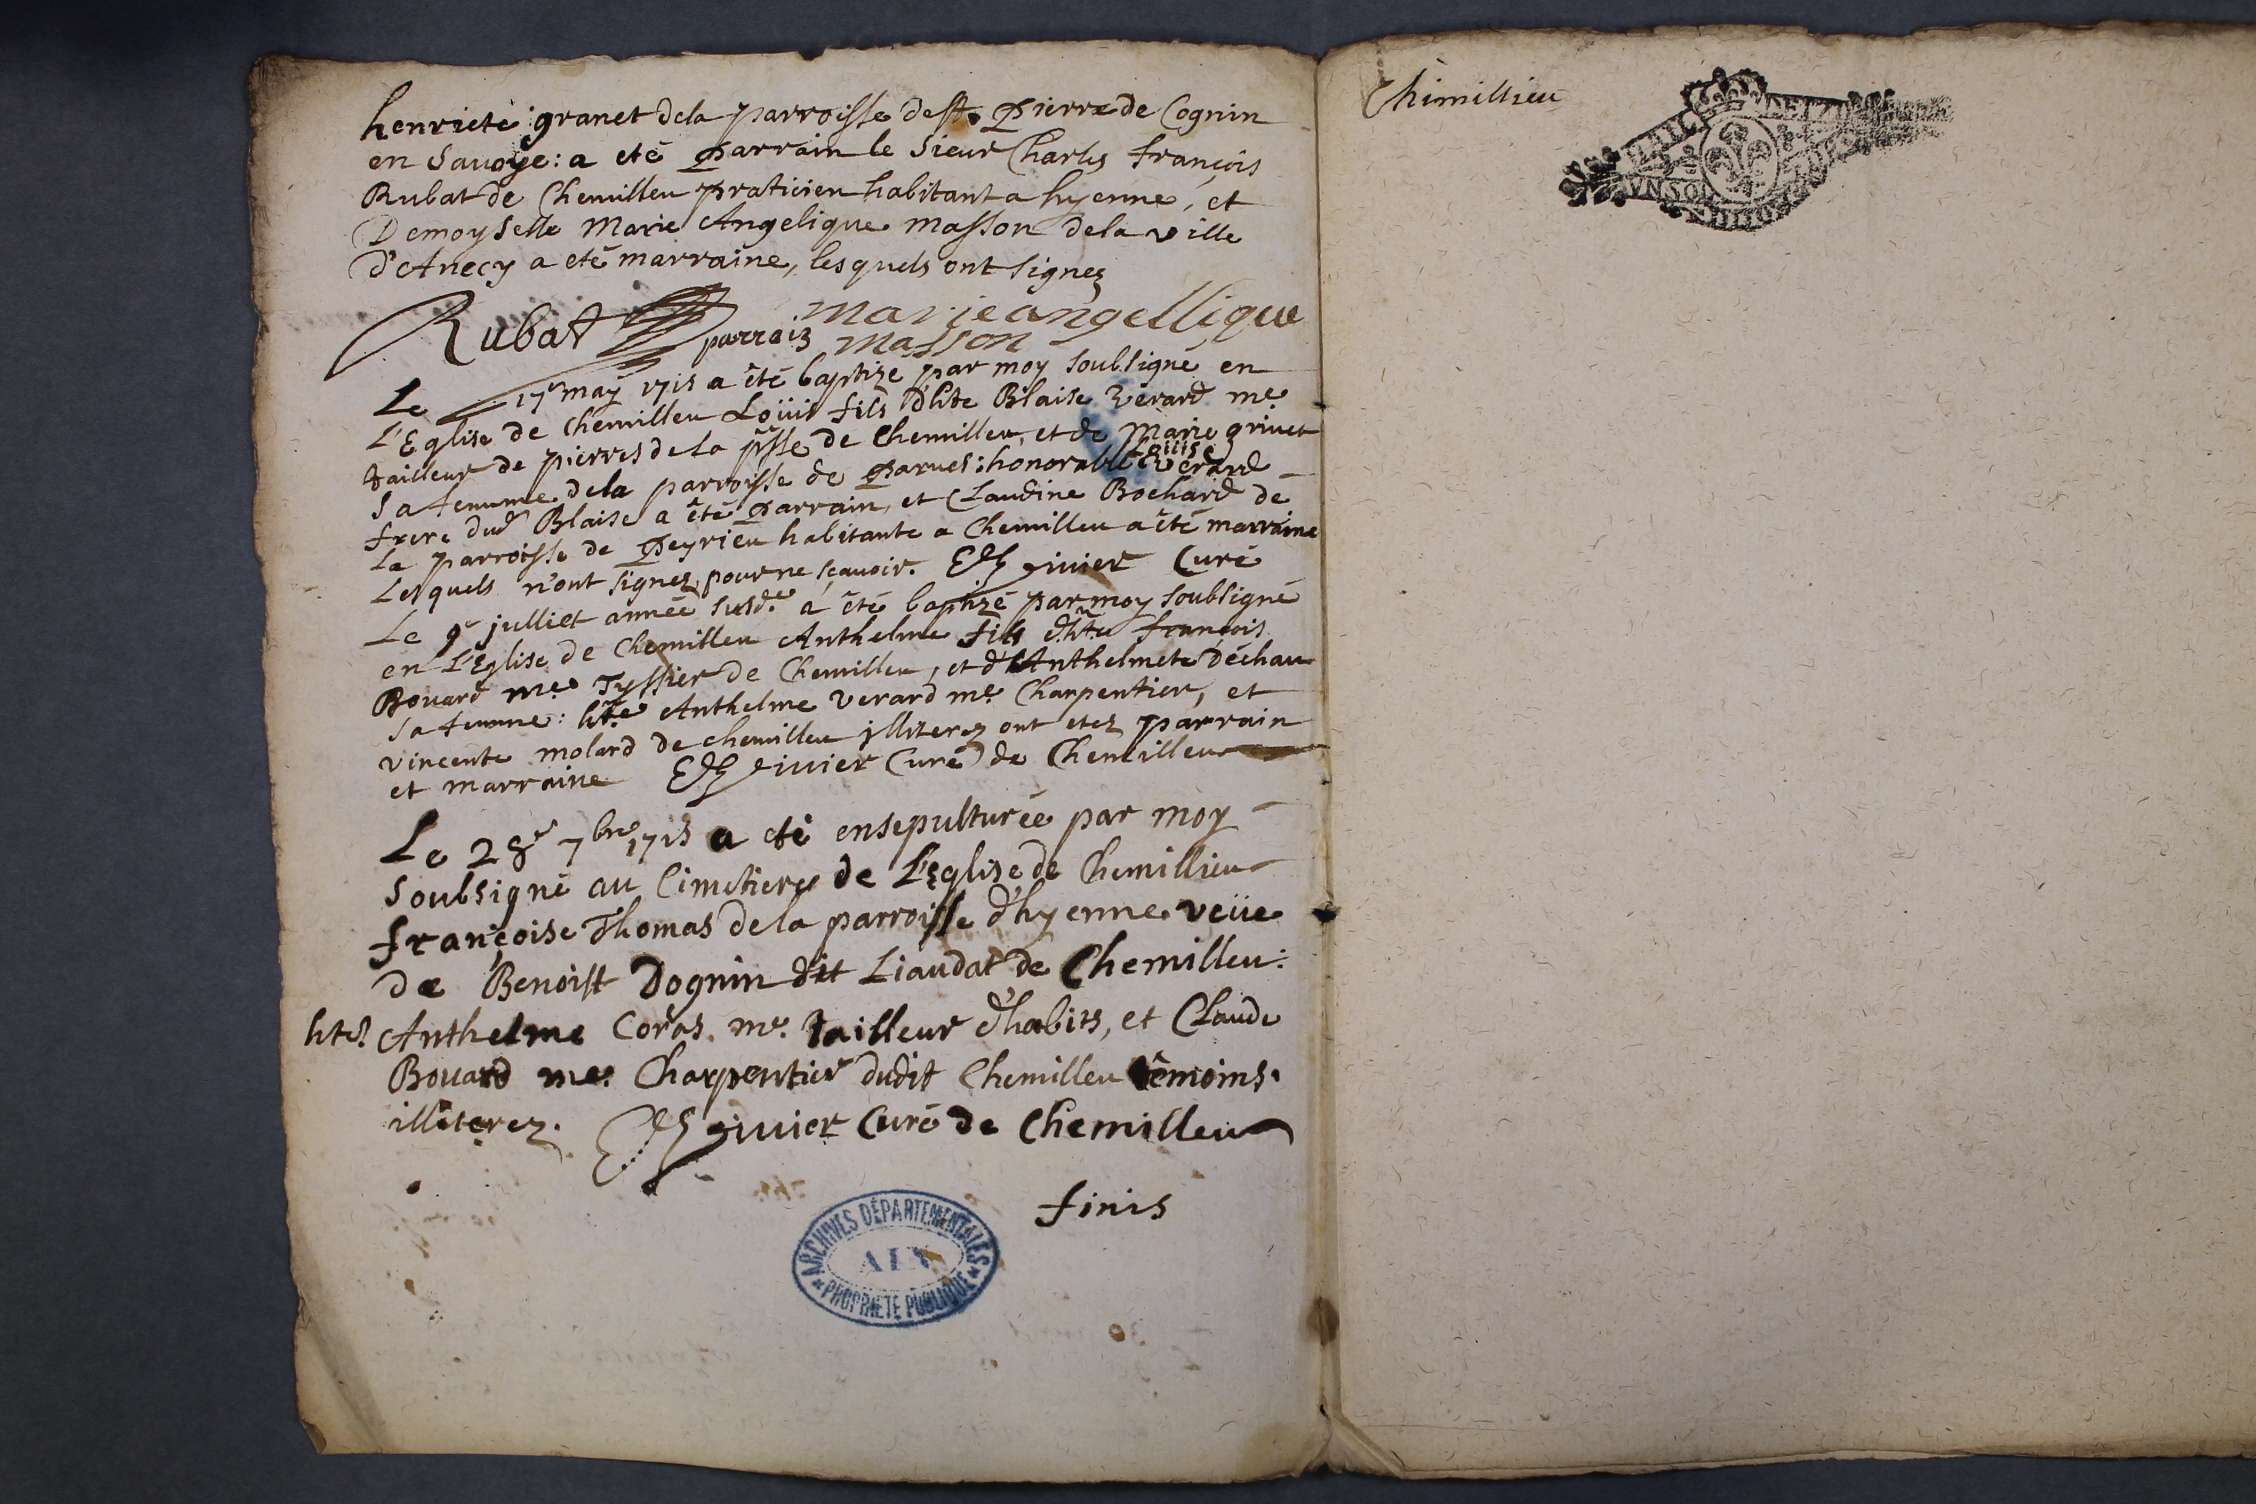 henriete granet dela parroisse de st. Pierre de Cognin
en Savoye: a eté parrain le Sieur Charles françois
Rubat de Chemilleu praticien habitant a hyenne, et
Demoyselle Marie Angelique Masson dela ville
d'Anecy a eté marraine, lesquels ont signez
Rubat parrain marie angellique
masson
Le 17e may 1715 a êté baptize par moy soubsigné en
L'Eglise de Chemilleu Loüis fils d'hte Blaise Verard me
tailleur de pierres de la psse de Chemilleu, et de Marie grinet
Sa femme dela parroisse de Parues: honorable Loüise Verard
frere dud Blaise a êté parrain, et Claudine Bochard de
La parroisse de Peyrieu habitante a Chemilleu a êté marraine
Lesquels n'ont signez pour ne sçavoir. givier Curé
Le 9e julliet année susde a êté baptizé par moy soubsigné
en L'Eglise de Chemilleu Anthelme fils d'hte françois
Bovard me Tyssier de Chemilleu, et d'Anthelmete Déchau
Sa femme: hte Anthelme Verard me Charpentier, et
Vincente molard de chemilleu illiterez ont etez parrain
et marraine givier Curé de Chemilleu
Le 28e 7bre 1715 a eté ensepulturée par moy
soubsigné au Cimetiere de L'Eglise de Chemillieu
françoise Thomas dela parroisse d'hyenne veüe
de Benoist Dognin dit Liaudat de Chemilleu:
hte Anthelme Coras me tailleur d'habits, et Claude
Bovard me Charpentier dudit Chemilleu têmoins
illiterez. givier Curé de Chemilleu
finis
ARCHIVES DÉPARTEMENTALES
AIN
PROPRIÉTÉ PUBLIQUE
Chimillieu
VN SOL